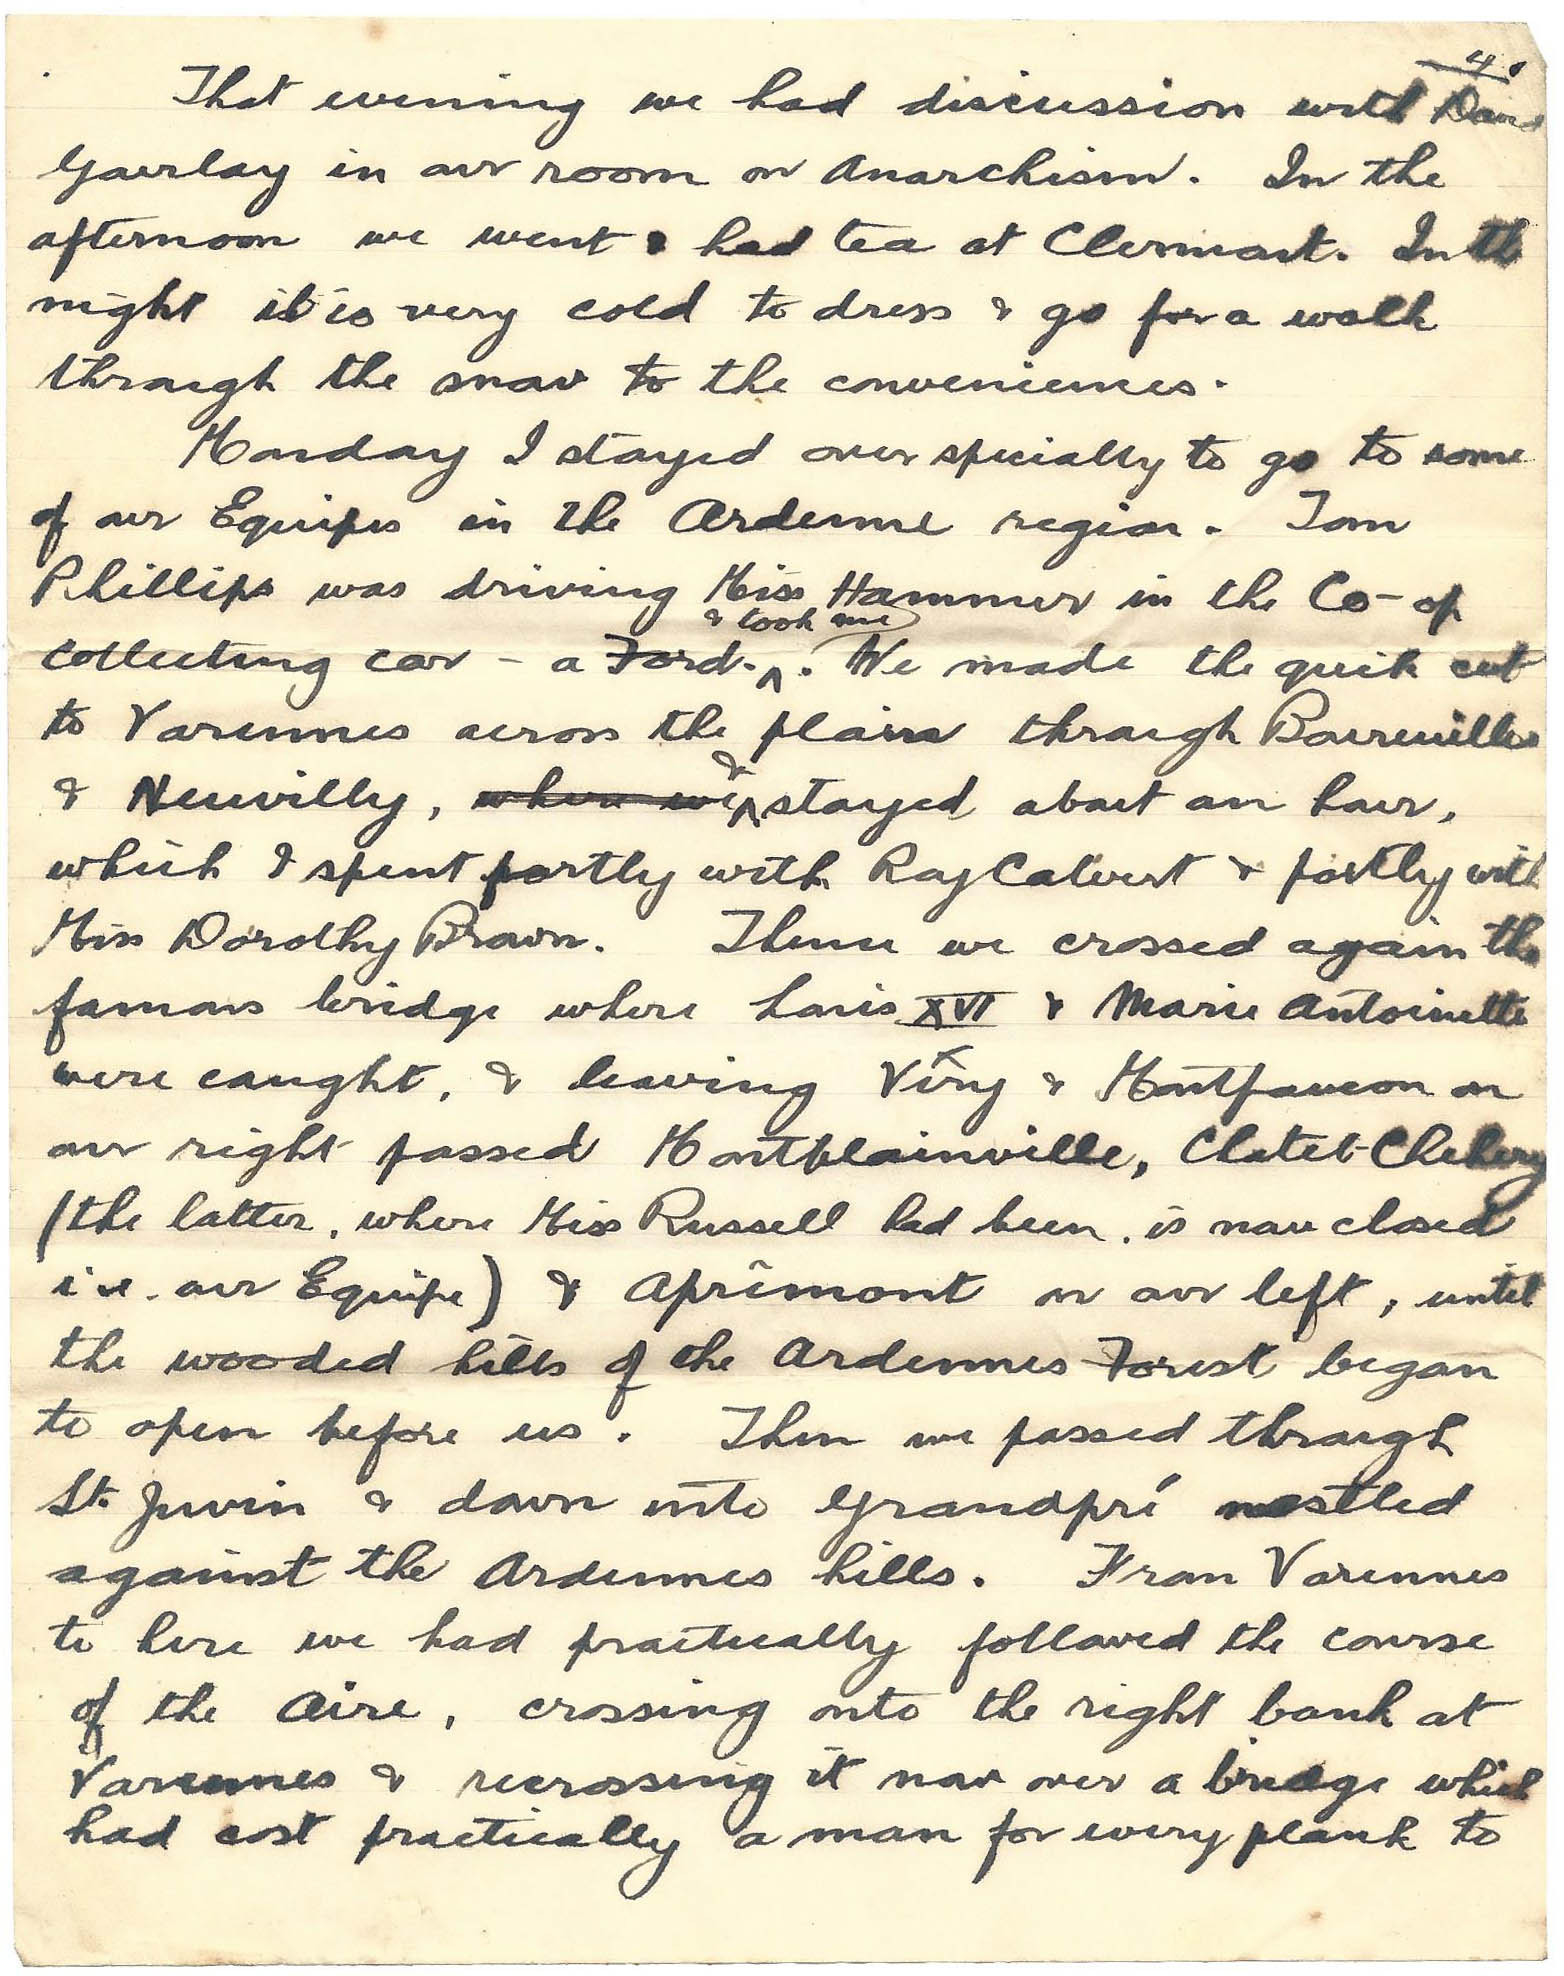 4.
That evening we had discussion with David
Gourlay in our room on Anarchism. In the
afternoon we went & had tea at Clermont. In the
night it is very cold to dress & go for a walk
through the snow to the conveniences.
Monday I stayed over specially to go to some
of our Equipes in the Ardenne region. Tom
Phillips was driving Miss Hammer in the Co-op
& took me
collecting car - a Ford. We made the quick cut
to Varennes across the plain through Boureuilles
& Neuvilly, where we & stayed about an hour,
which I spent partly with Ray Calvert & partly with
Miss Dorothy Brown. Thence we crossed again the
famous bridge where Louis XVI & Marie Antoinette
were caught, & leaving Véry & Montfaucon on
our right passed Montblainville, Chatel-Chehery
(the latter, where Miss Russell had been, is now closed
i.e. our Equipe) & Aprêmont on our left, until
the wooded hills of the Ardennes Forest began
to open before us. Then we passed through
St. Juvin & down into Grandpré nestled
against the Ardennes hills. From Varennes
to here we had practically followed the course
of the Aire, crossing onto the right bank at
Varennes & recrossing it now over a bridge which
had cost practically a man for every plank to